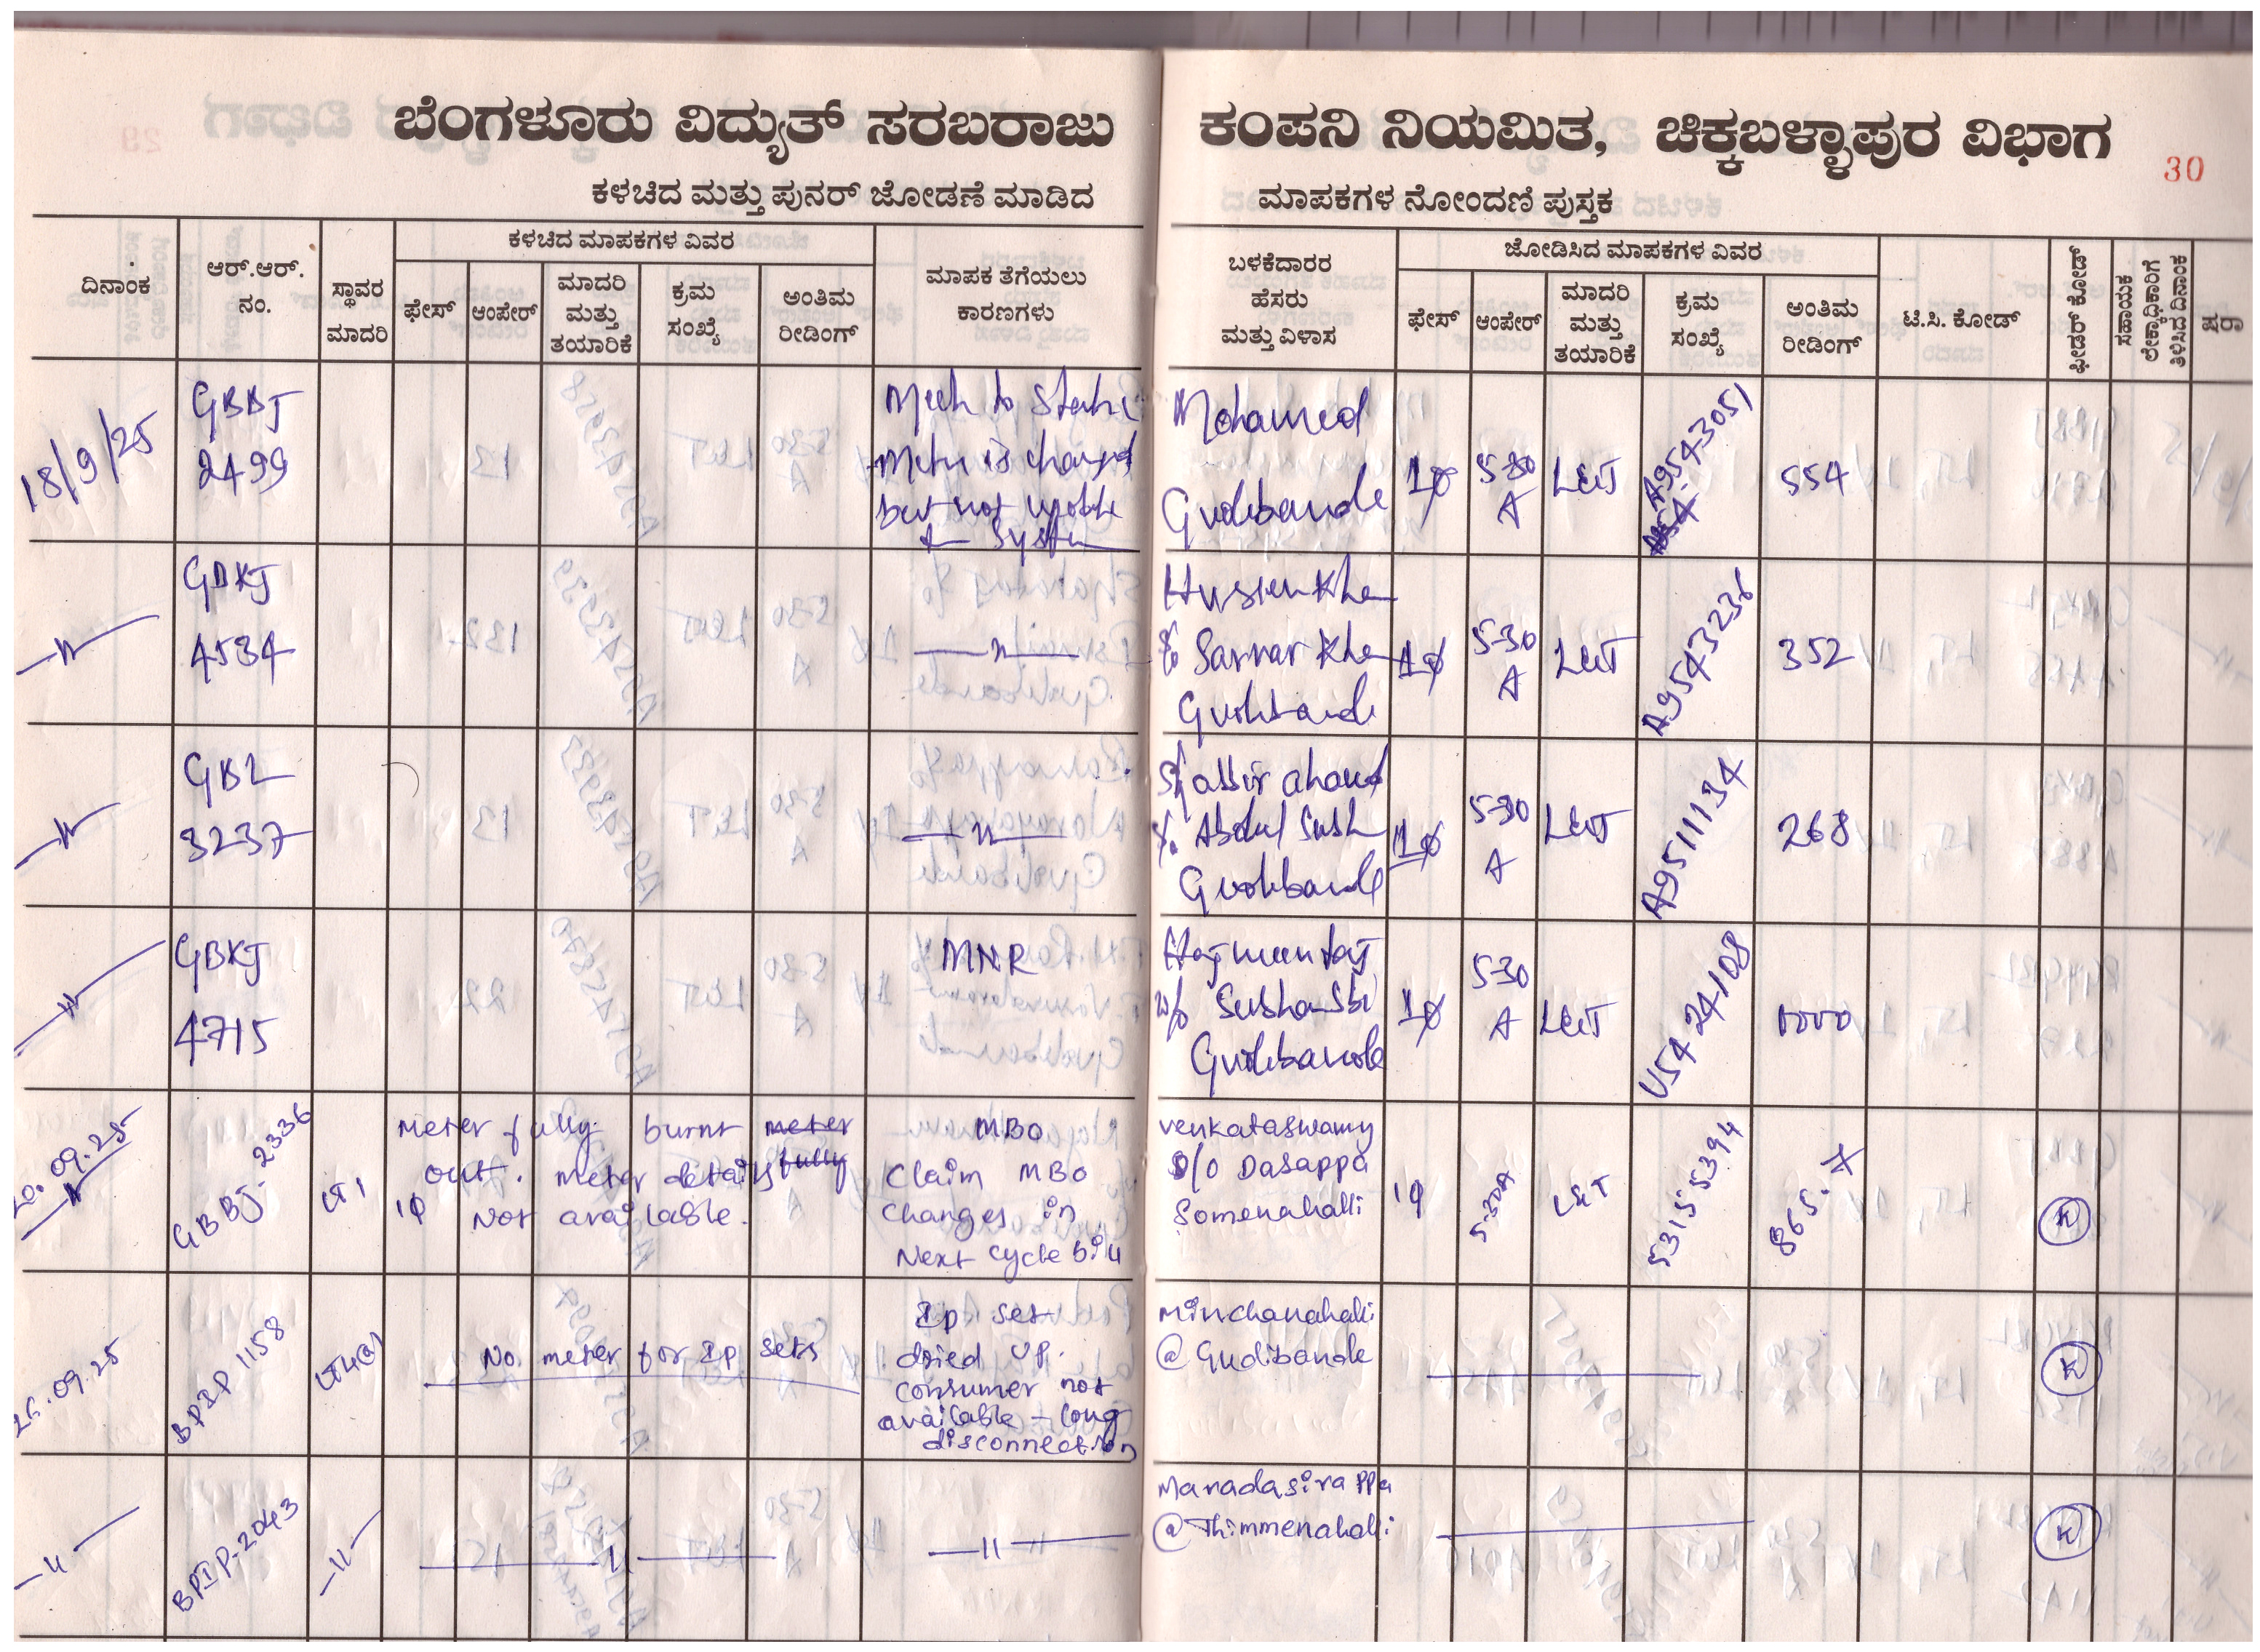 ಬೆಂಗಳೂರು ವಿದ್ಯುತ್ ಸರಬರಾಜು ಕಂಪನಿ ನಿಯಮಿತ, ಚಿಕ್ಕಬಳ್ಳಾಪುರ ವಿಭಾಗ
30
ಕಳಚಿದ ಮತ್ತು ಪುನರ್ ಜೋಡಣೆ ಮಾಡಿದ ಮಾಪಕಗಳ ನೋಂದಣಿ ಪುಸ್ತಕ
ದಿನಾಂಕ
ಆರ್.ಆರ್.
ನಂ.
ಸ್ಥಾವರ
ಮಾದರಿ
ಕಳಚಿದ ಮಾಪಕಗಳ ವಿವರ
ಫೇಸ್
ಆಂಪೇರ್
ಮಾದರಿ
ಮತ್ತು
ತಯಾರಿಕೆ
ಕ್ರಮ
ಸಂಖ್ಯೆ
ಅಂತಿಮ
ರೀಡಿಂಗ್
ಮಾಪಕ ತೆಗೆಯಲು
ಕಾರಣಗಳು
ಬಳಕೆದಾರರ
ಹೆಸರು
ಮತ್ತು ವಿಳಾಸ
ಜೋಡಿಸಿದ ಮಾಪಕಗಳ ವಿವರ
ಫೇಸ್
ಆಂಪೇರ್
ಮಾದರಿ
ಮತ್ತು
ತಯಾರಿಕೆ
ಕ್ರಮ
ಸಂಖ್ಯೆ
ಅಂತಿಮ
ರೀಡಿಂಗ್
ಟಿ.ಸಿ. ಕೋಡ್
ಫೀಡರ್ ಕೋಡ್
ಸಹಾಯಕ
ಲೇಕ್ಕಾಧಿಕಾರಿಗೆ
ತಿಳಿಸಿದ ದಿನಾಂಕ
ಷರಾ
18/9/25
GBBJ
2499
Mech to Static
Meter is changed
but not
System
Mohamed
Gudibande
1φ
5-30
A
L&T
A9543051
554
GBKJ
4534
Khan
Gudibande
1φ
5-30
A
L&T
A9543236
352
GBL
3237
Abdul
Gudibande
1φ
5-30
A
L&T
A9511134
268
GBKJ
4715
MNR
w/o
Gudibande
1φ
5-30
A
L&T
U5424108
20.09.25
GBBJ-2336
LT1
1φ
meter fully burnt meter
out. meter details fully
Not available.
MBO
Claim MBO
Changes in
Next cycle bill
venkataswamy
S/o Dasappa
Somenahalli
1φ
5-30A
L&T
53155394
865.7
26.09.25
BPIP 1158
LT4(a)
No. meter for Ip sets
Ip set
dried up.
consumer not
available - long
disconnection
Minchanahalli
@ Gudibande
BPIP-2043
-11-
-11-
Maradasirappa
@ Thimmenahalli